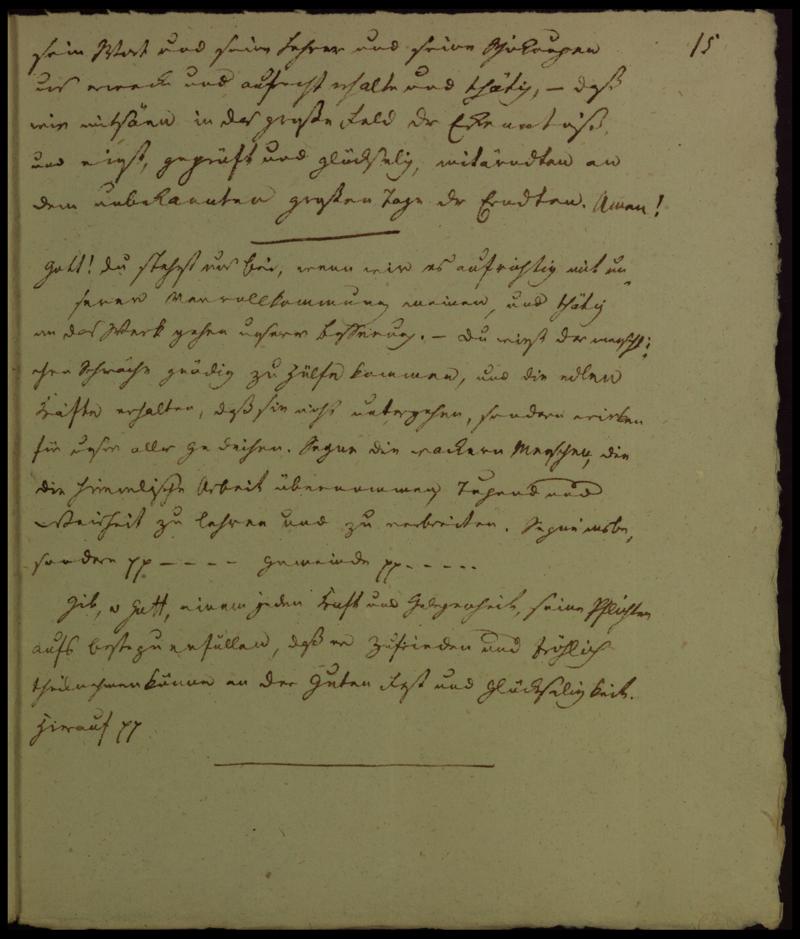 15
sein Wort und seine Lehren und seine Schickungen
uns erwecke und aufrecht erhalte und thätig, – daß
wir mitsäen in das große Feld der Erkenntniß,
und einst, geprüft und glückselig, mitärndten an
dem unbekannten großen Tage der Erndten. Amen!
Gott! du stehst uns bei, wenn wir es aufrichtig mit un
serer Vervollkommnung meinen, und thätig
an das Werk gehen unserer Besserung. – Du wirst der menschli
chen Schwäche gnädig zu Hülfe kommen, und die edlen
Kräfte erhalten, daß sie nicht untergehen, sondern wirken
für unser aller Gedeihen. Segne die wackern Menschen, die
die himmlische Arbeit übernommen Tugend und
Weisheit zu lehren und zu verbreiten. Segne insbe,
sondere pp – – – – Gemeinde pp – – – – –
Gib, o Gott, einem jeden Kraft und Gelegenheit, seine Pflichten
aufs beste zu erfüllen, daß er zufrieden und fröhlich
theilnehmen könne an der Guten Fest und Glückseligkeit.
Hierauf pp